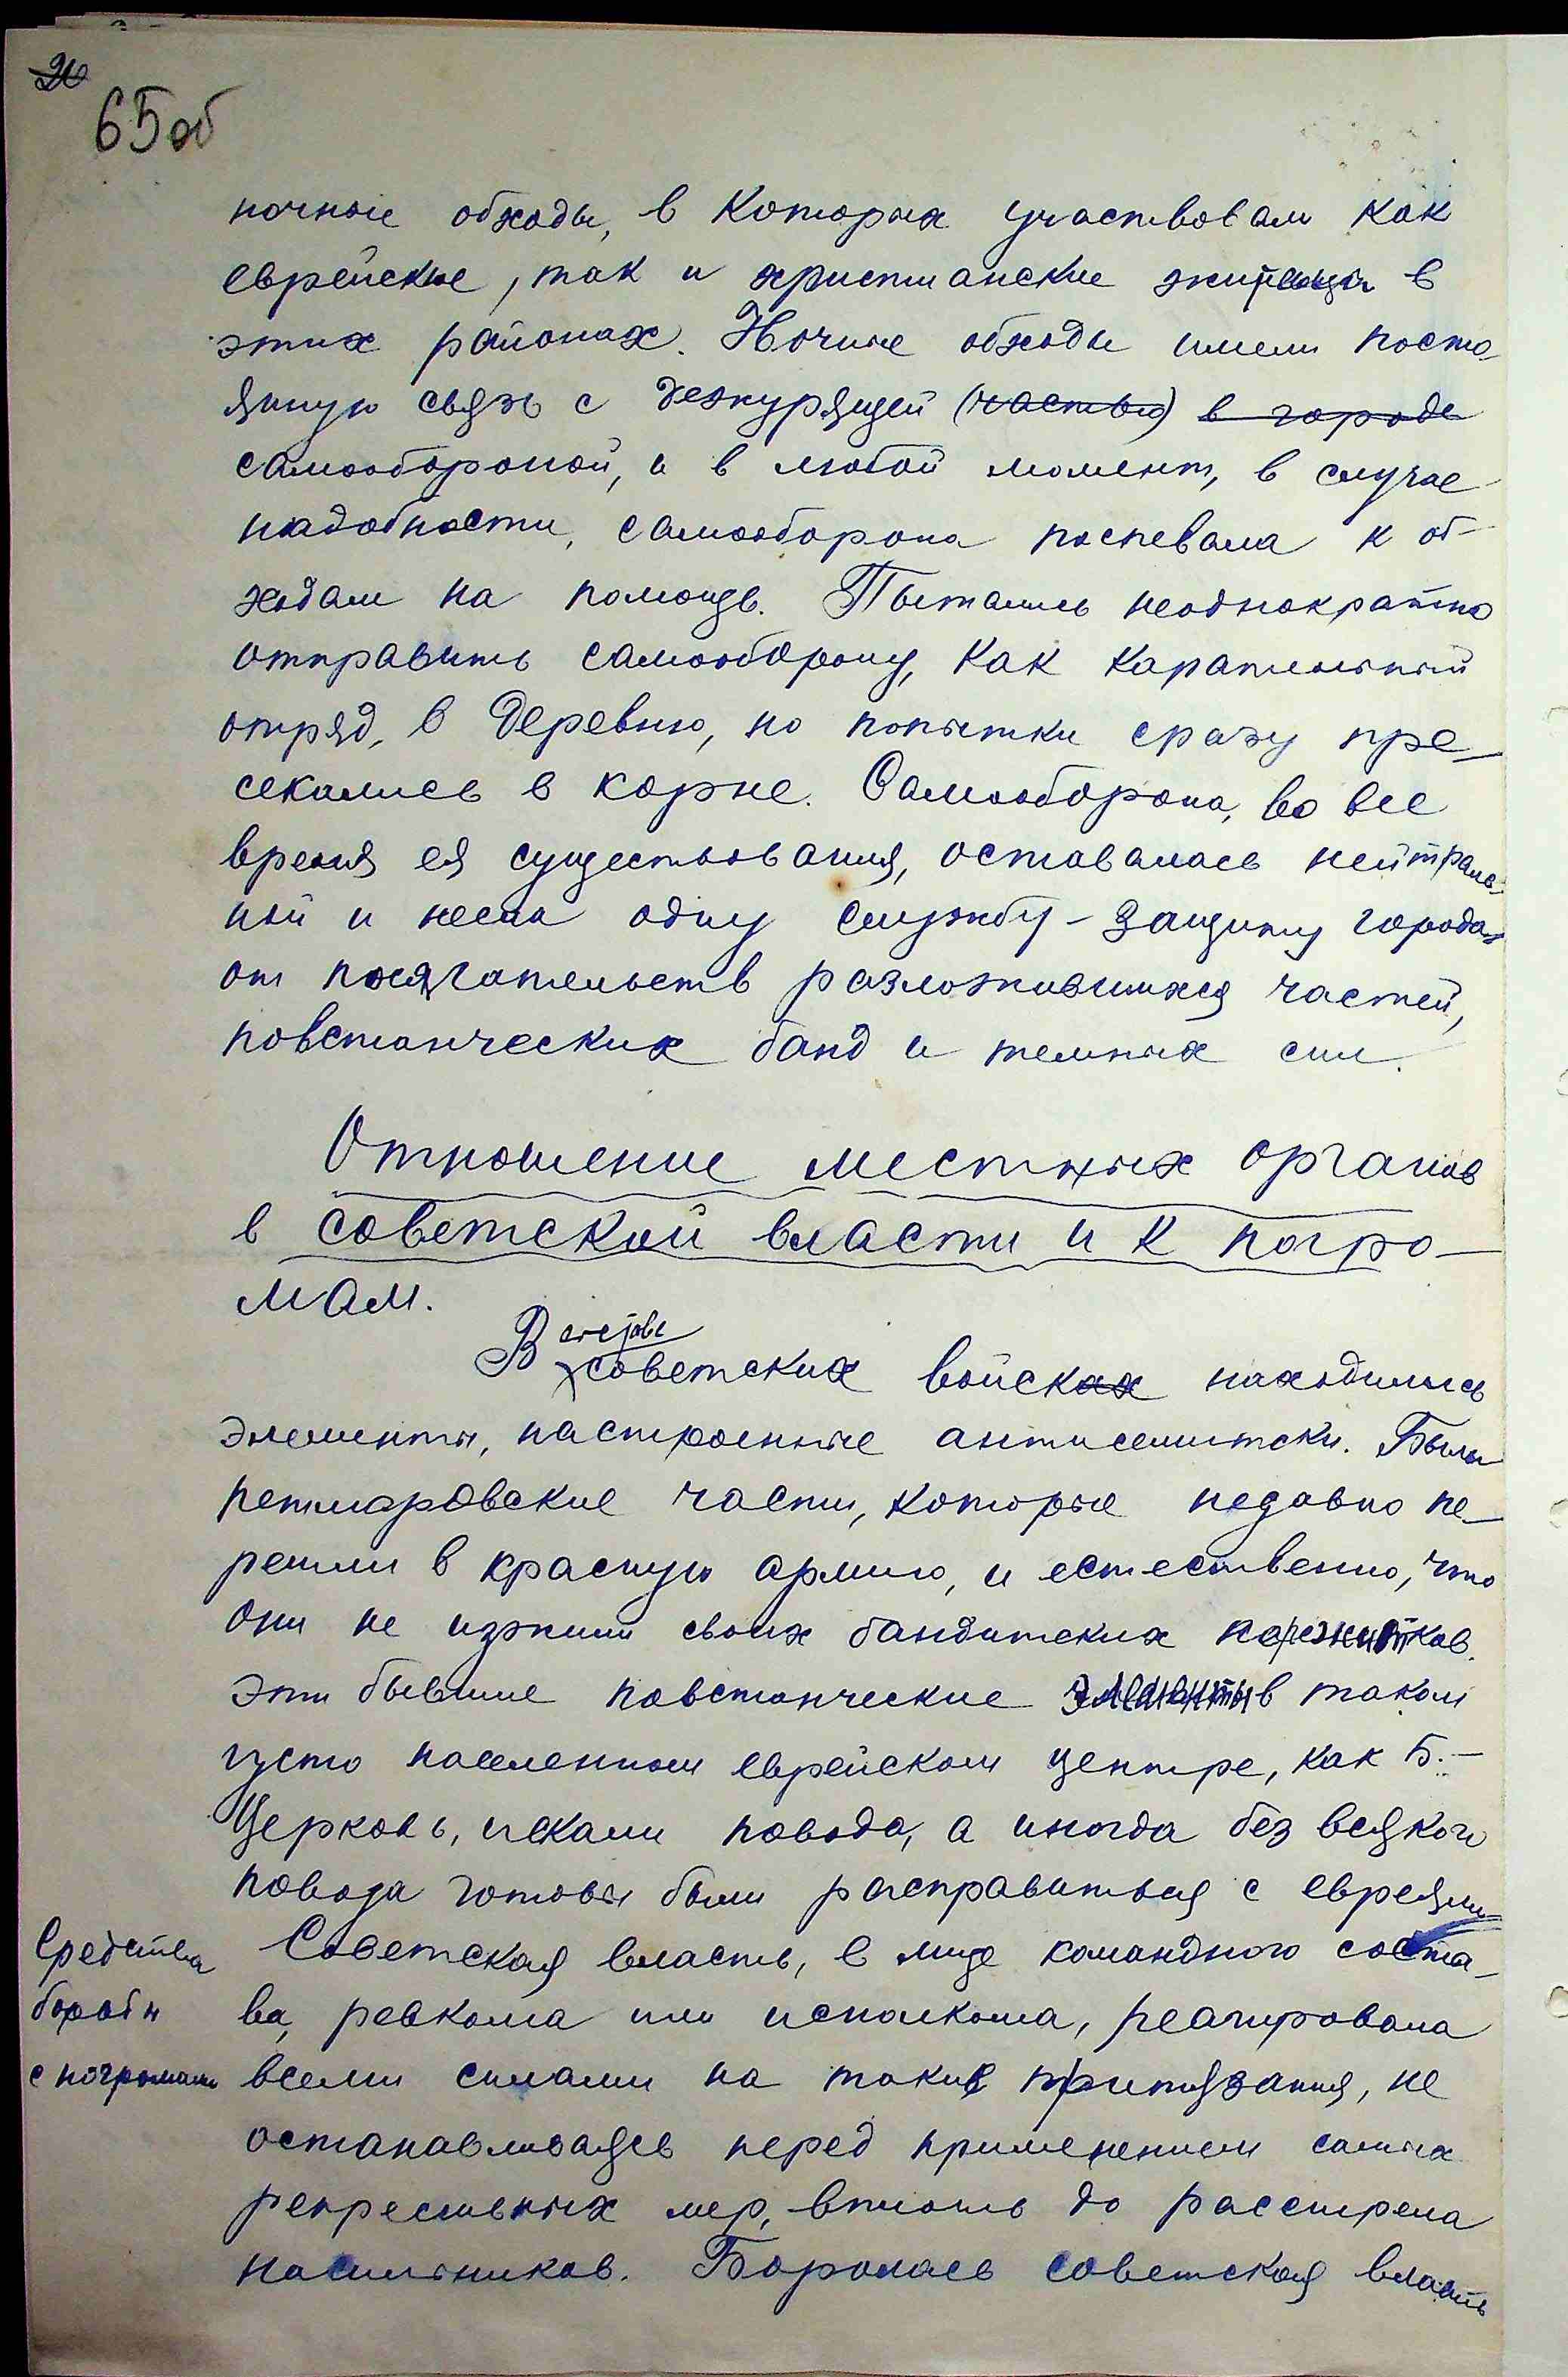 65об
ночные обходы, в которых участвовали как
еврейские, так и христианские жильцы в
этих районах. Ночные обходы имели посто-
янную связь с дежурящей (частью) в городе
самообороной, и в любой момент, в случае
надобности, самооборона поспевала к об-
ходам на помощь. Пытались неоднократно
отправить самооборону, как карательный
отряд, в деревню, но попытки сразу пре-
секались в корне. Самооборона, во все
время ея существования, оставалась нейтраль-
ной и несла одну службу - защиту города
от посягательств разложившихся частей,
повстанческих банд и темных сил.
Отношение местных органов
в советской власти и к погро-
мам.
В советских войсках находились
элементы, настроенные антисемитски. Были
петлюровские части, которые недавно пе-
решли в красную армию, и естественно, что
они не изжили своих бандитских пережитков.
Эти бывшие повстанческие элементы в таком
густо населенном еврейском центре, как Б.-
Церковь, искали повода, а иногда без всякого
повода готовы были расправиться с евреями
Средства
борьбы
с погромами
Советская власть, в лице командного соста-
ва, ревкома или исполкома, реагировала
всеми силами на такие притязания, не
останавливаясь перед применением самых
репрессивных мер, вплоть до расстрела
насильников. Боролась советская власть